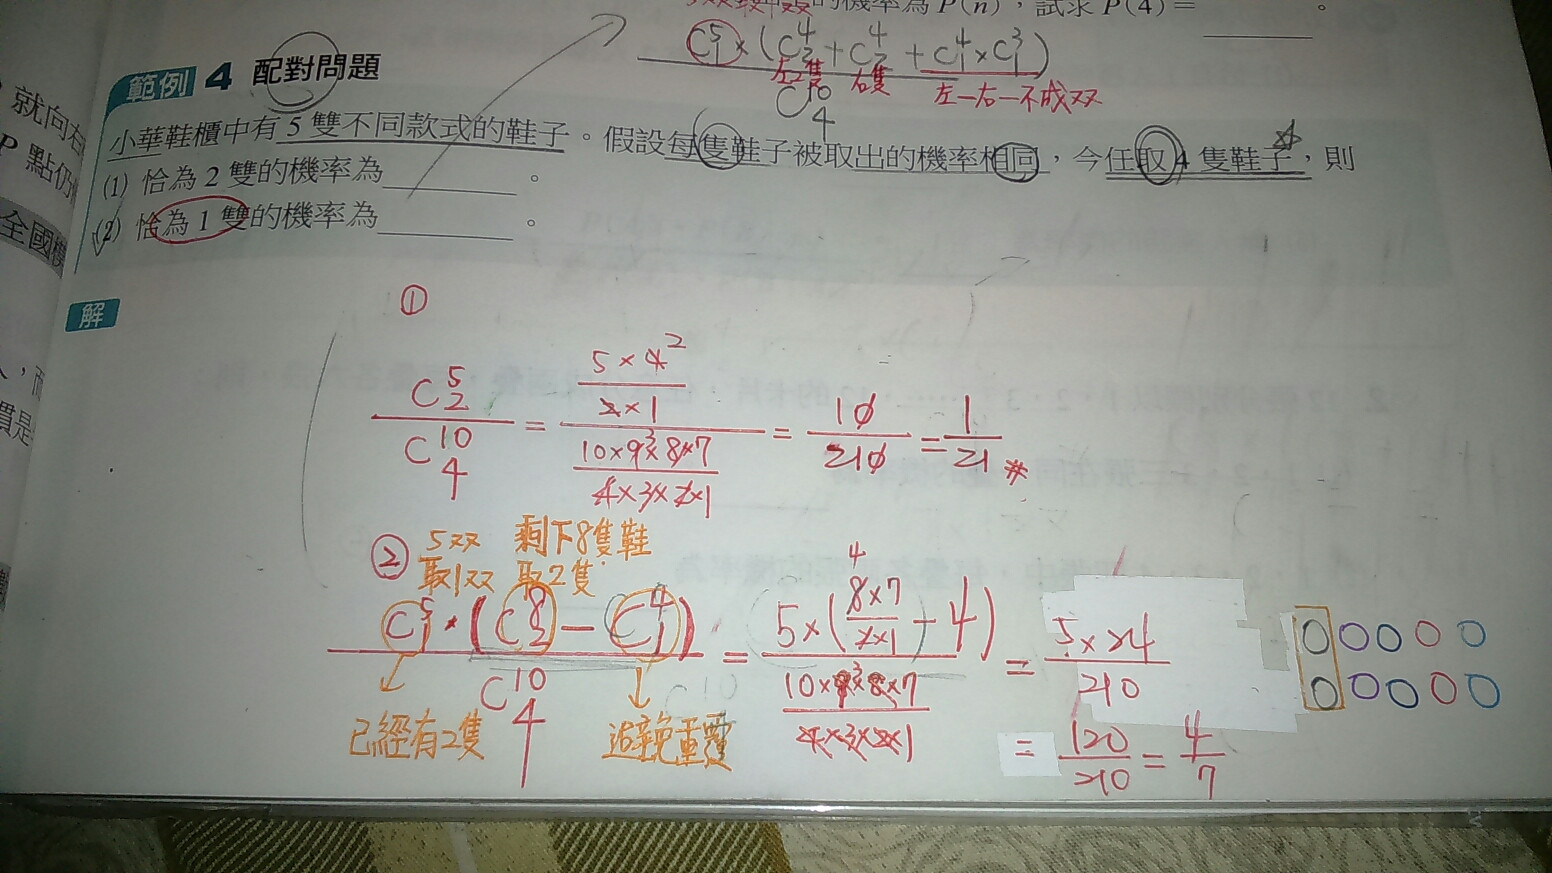 的機率為 P(n)，試求 P(4) = ______。
C⁵₁ × (C⁴₂ + C⁴₂ + C⁴₁ × C³₁)
左2隻 右隻 左一右一不成双
C¹⁰₄
範例 4 配對問題
小華鞋櫃中有 5 雙不同款式的鞋子。假設每隻鞋子被取出的機率相同，今任取 4 隻鞋子，則
(1) 恰為 2 雙的機率為______。
(2) 恰為 1 雙的機率為______。
解
①
C⁵₂ / C¹⁰₄ = (5×4 2 / 2×1) / (10×9 3×8×7 / 4×3×2×1) = 10 / 210 = 1 / 21 #
② 5双 剩下8隻鞋
取1双 取2隻
C⁵₁ · (C⁸₂ − C⁴₁) / C¹⁰₄ = 5×(4 8×7 / 2×1 − 4) / (10×9 3×8×7 / 4×3×2×1) = 5×24 / 210
已經有2隻 避免重覆
= 120 / 210 = 4 / 7
就向右
P 點仍
全國
慣是